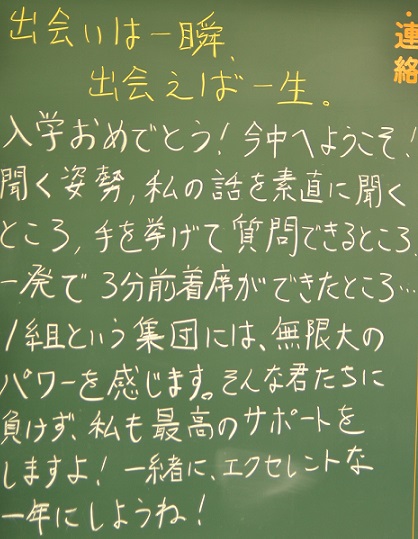 連絡
出会いは一瞬、
出会えば一生。
入学おめでとう！今中へようこそ！
聞く姿勢，私の話を素直に聞く
ところ，手を挙げて質問できるところ，
一発で3分前着席ができたところ…
1組という集団には、無限大の
パワーを感じます。そんな君たちに
負けず、私も最高のサポートを
しますよ！一緒に、エクセレントな
一年にしようね！